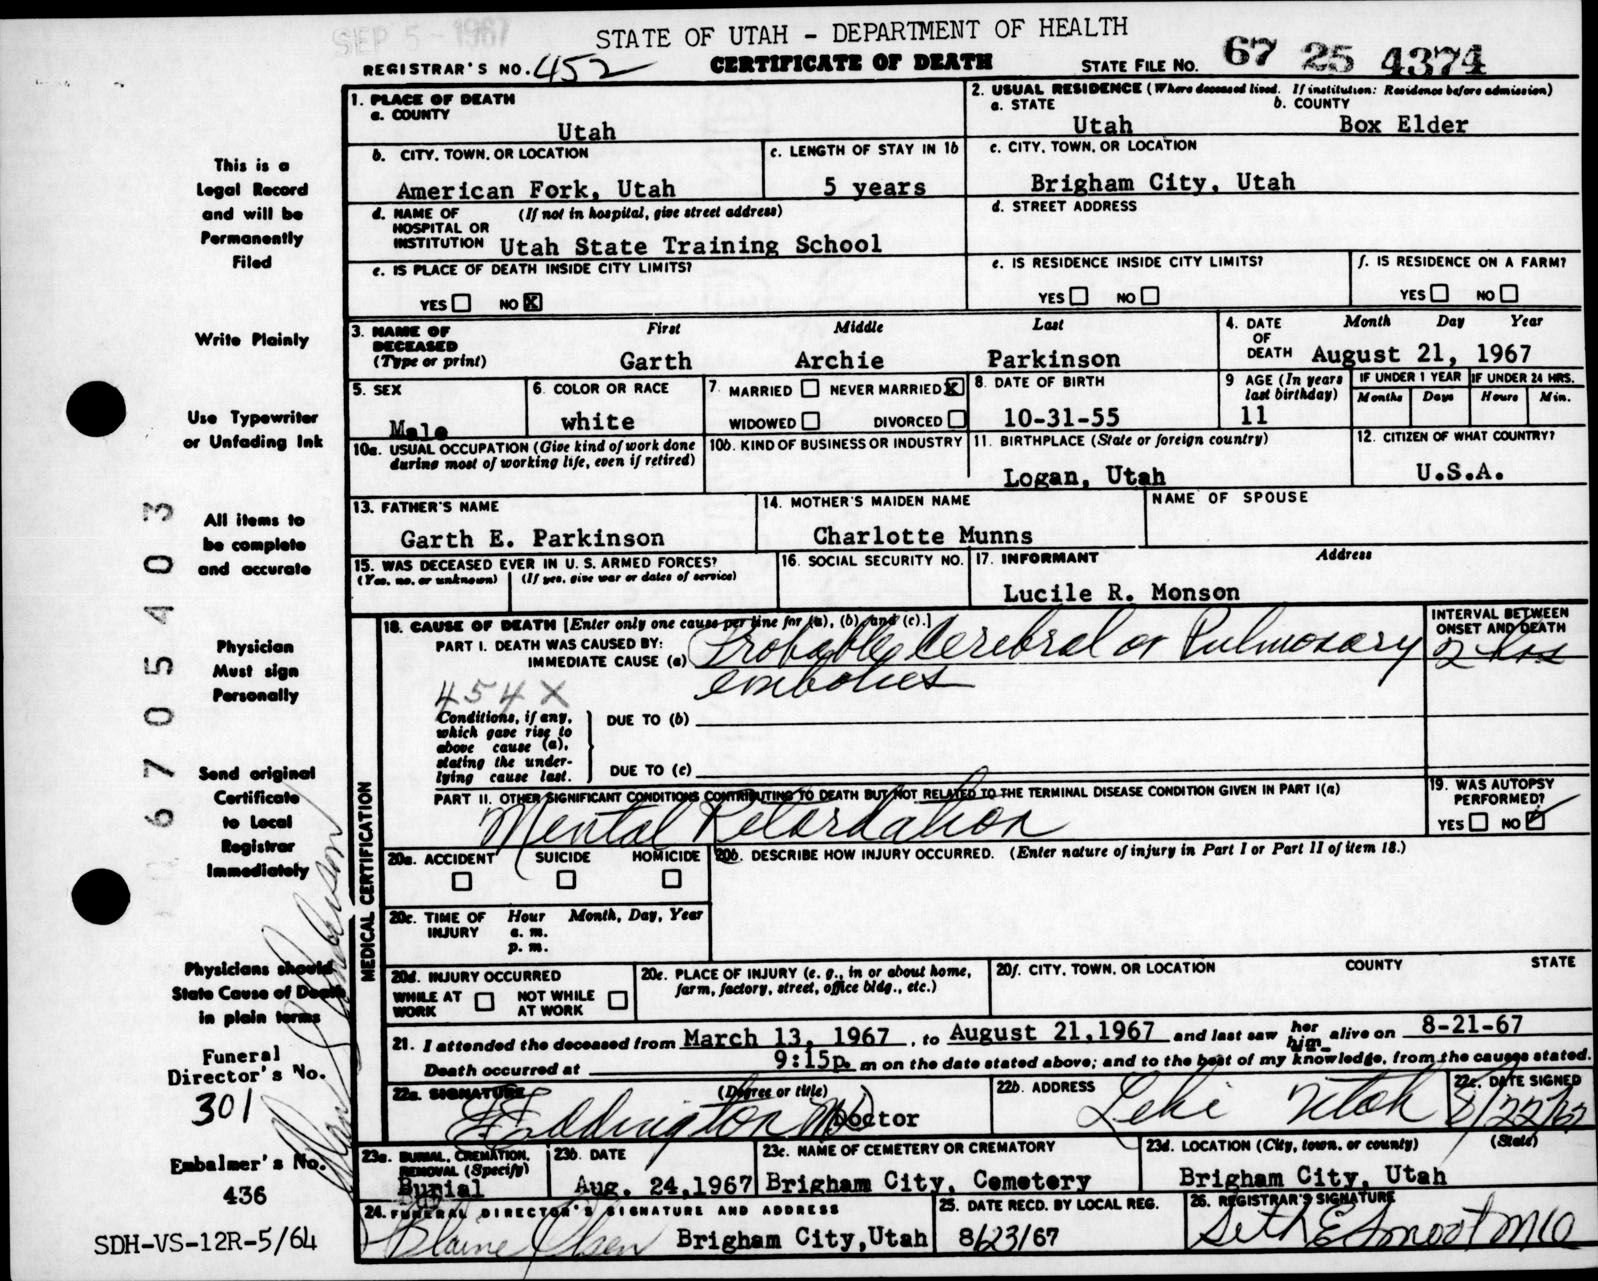 SEP 5 - 1967
STATE OF UTAH - DEPARTMENT OF HEALTH
REGISTRAR'S NO. 452 CERTIFICATE OF DEATH STATE FILE NO. 67 25 4374
This is a
Legal Record
and will be
Permanently
Filed
Write Plainly
Use Typewriter
or Unfading Ink
All items to
be complete
and accurate
Physician
Must sign
Personally
Send original
Certificate
to Local
Registrar
Immediately
Physicians should
State Cause of Death
in plain terms
Funeral
Director's No.
301
Embalmer's No.
436
SDH-VS-12R-5/64
6705403
1. PLACE OF DEATH
a. COUNTY
Utah
2. USUAL RESIDENCE (Where deceased lived. If institution: Residence before admission)
a. STATE b. COUNTY
Utah Box Elder
b. CITY, TOWN, OR LOCATION
American Fork, Utah
c. LENGTH OF STAY IN 1b
5 years
c. CITY, TOWN, OR LOCATION
Brigham City, Utah
d. NAME OF (If not in hospital, give street address)
HOSPITAL OR
INSTITUTION Utah State Training School
d. STREET ADDRESS
e. IS PLACE OF DEATH INSIDE CITY LIMITS?
YES NO X
e. IS RESIDENCE INSIDE CITY LIMITS?
YES NO
f. IS RESIDENCE ON A FARM?
YES NO
3. NAME OF First Middle Last
DECEASED
(Type or print) Garth Archie Parkinson
4. DATE Month Day Year
OF
DEATH August 21, 1967
5. SEX
Male
6. COLOR OR RACE
white
7. MARRIED NEVER MARRIED X
WIDOWED DIVORCED
8. DATE OF BIRTH
10-31-55
9 AGE (In years
last birthday)
11
IF UNDER 1 YEAR IF UNDER 24 HRS.
Months Days Hours Min.
10a. USUAL OCCUPATION (Give kind of work done
during most of working life, even if retired)
10b. KIND OF BUSINESS OR INDUSTRY
11. BIRTHPLACE (State or foreign country)
Logan, Utah
12. CITIZEN OF WHAT COUNTRY?
U.S.A.
13. FATHER'S NAME
Garth E. Parkinson
14. MOTHER'S MAIDEN NAME
Charlotte Munns
NAME OF SPOUSE
15. WAS DECEASED EVER IN U. S. ARMED FORCES?
(Yes, no, or unknown) (If yes, give war or dates of service)
16. SOCIAL SECURITY NO.
17. INFORMANT Address
Lucile R. Monson
MEDICAL CERTIFICATION
18. CAUSE OF DEATH [Enter only one cause per line for (a), (b), and (c).]
PART I. DEATH WAS CAUSED BY:
IMMEDIATE CAUSE (a) Probable Cerebral or Pulmonary
embolus
INTERVAL BETWEEN
ONSET AND DEATH
2 hrs
454X
Conditions, if any,
which gave rise to
above cause (a),
stating the under-
lying cause last.
DUE TO (b)
DUE TO (c)
PART II. OTHER SIGNIFICANT CONDITIONS CONTRIBUTING TO DEATH BUT NOT RELATED TO THE TERMINAL DISEASE CONDITION GIVEN IN PART I(a)
Mental Retardation
19. WAS AUTOPSY
PERFORMED?
YES NO
20a. ACCIDENT SUICIDE HOMICIDE
20b. DESCRIBE HOW INJURY OCCURRED. (Enter nature of injury in Part I or Part II of item 18.)
20c. TIME OF Hour Month, Day, Year
INJURY a. m.
p. m.
20d. INJURY OCCURRED
WHILE AT NOT WHILE
WORK AT WORK
20e. PLACE OF INJURY (e. g., in or about home,
farm, factory, street, office bldg., etc.)
20f. CITY, TOWN, OR LOCATION COUNTY STATE
21. I attended the deceased from March 13, 1967, to August 21,1967 and last saw her him alive on 8-21-67
Death occurred at 9:15p. m on the date stated above; and to the best of my knowledge, from the causes stated.
22a. SIGNATURE (Degree or title)
Eddington MD Doctor
22b. ADDRESS
Lehi Utah
22c. DATE SIGNED
8/22/67
23a. BURIAL, CREMATION,
REMOVAL (Specify)
Burial
23b. DATE
Aug. 24,1967
23c. NAME OF CEMETERY OR CREMATORY
Brigham City, Cemetery
23d. LOCATION (City, town, or county) (State)
Brigham City, Utah
24. FUNERAL DIRECTOR'S SIGNATURE AND ADDRESS
Blaine Olsen Brigham City,Utah
25. DATE RECD. BY LOCAL REG.
8/23/67
26. REGISTRAR'S SIGNATURE
Seth E Smoot MD